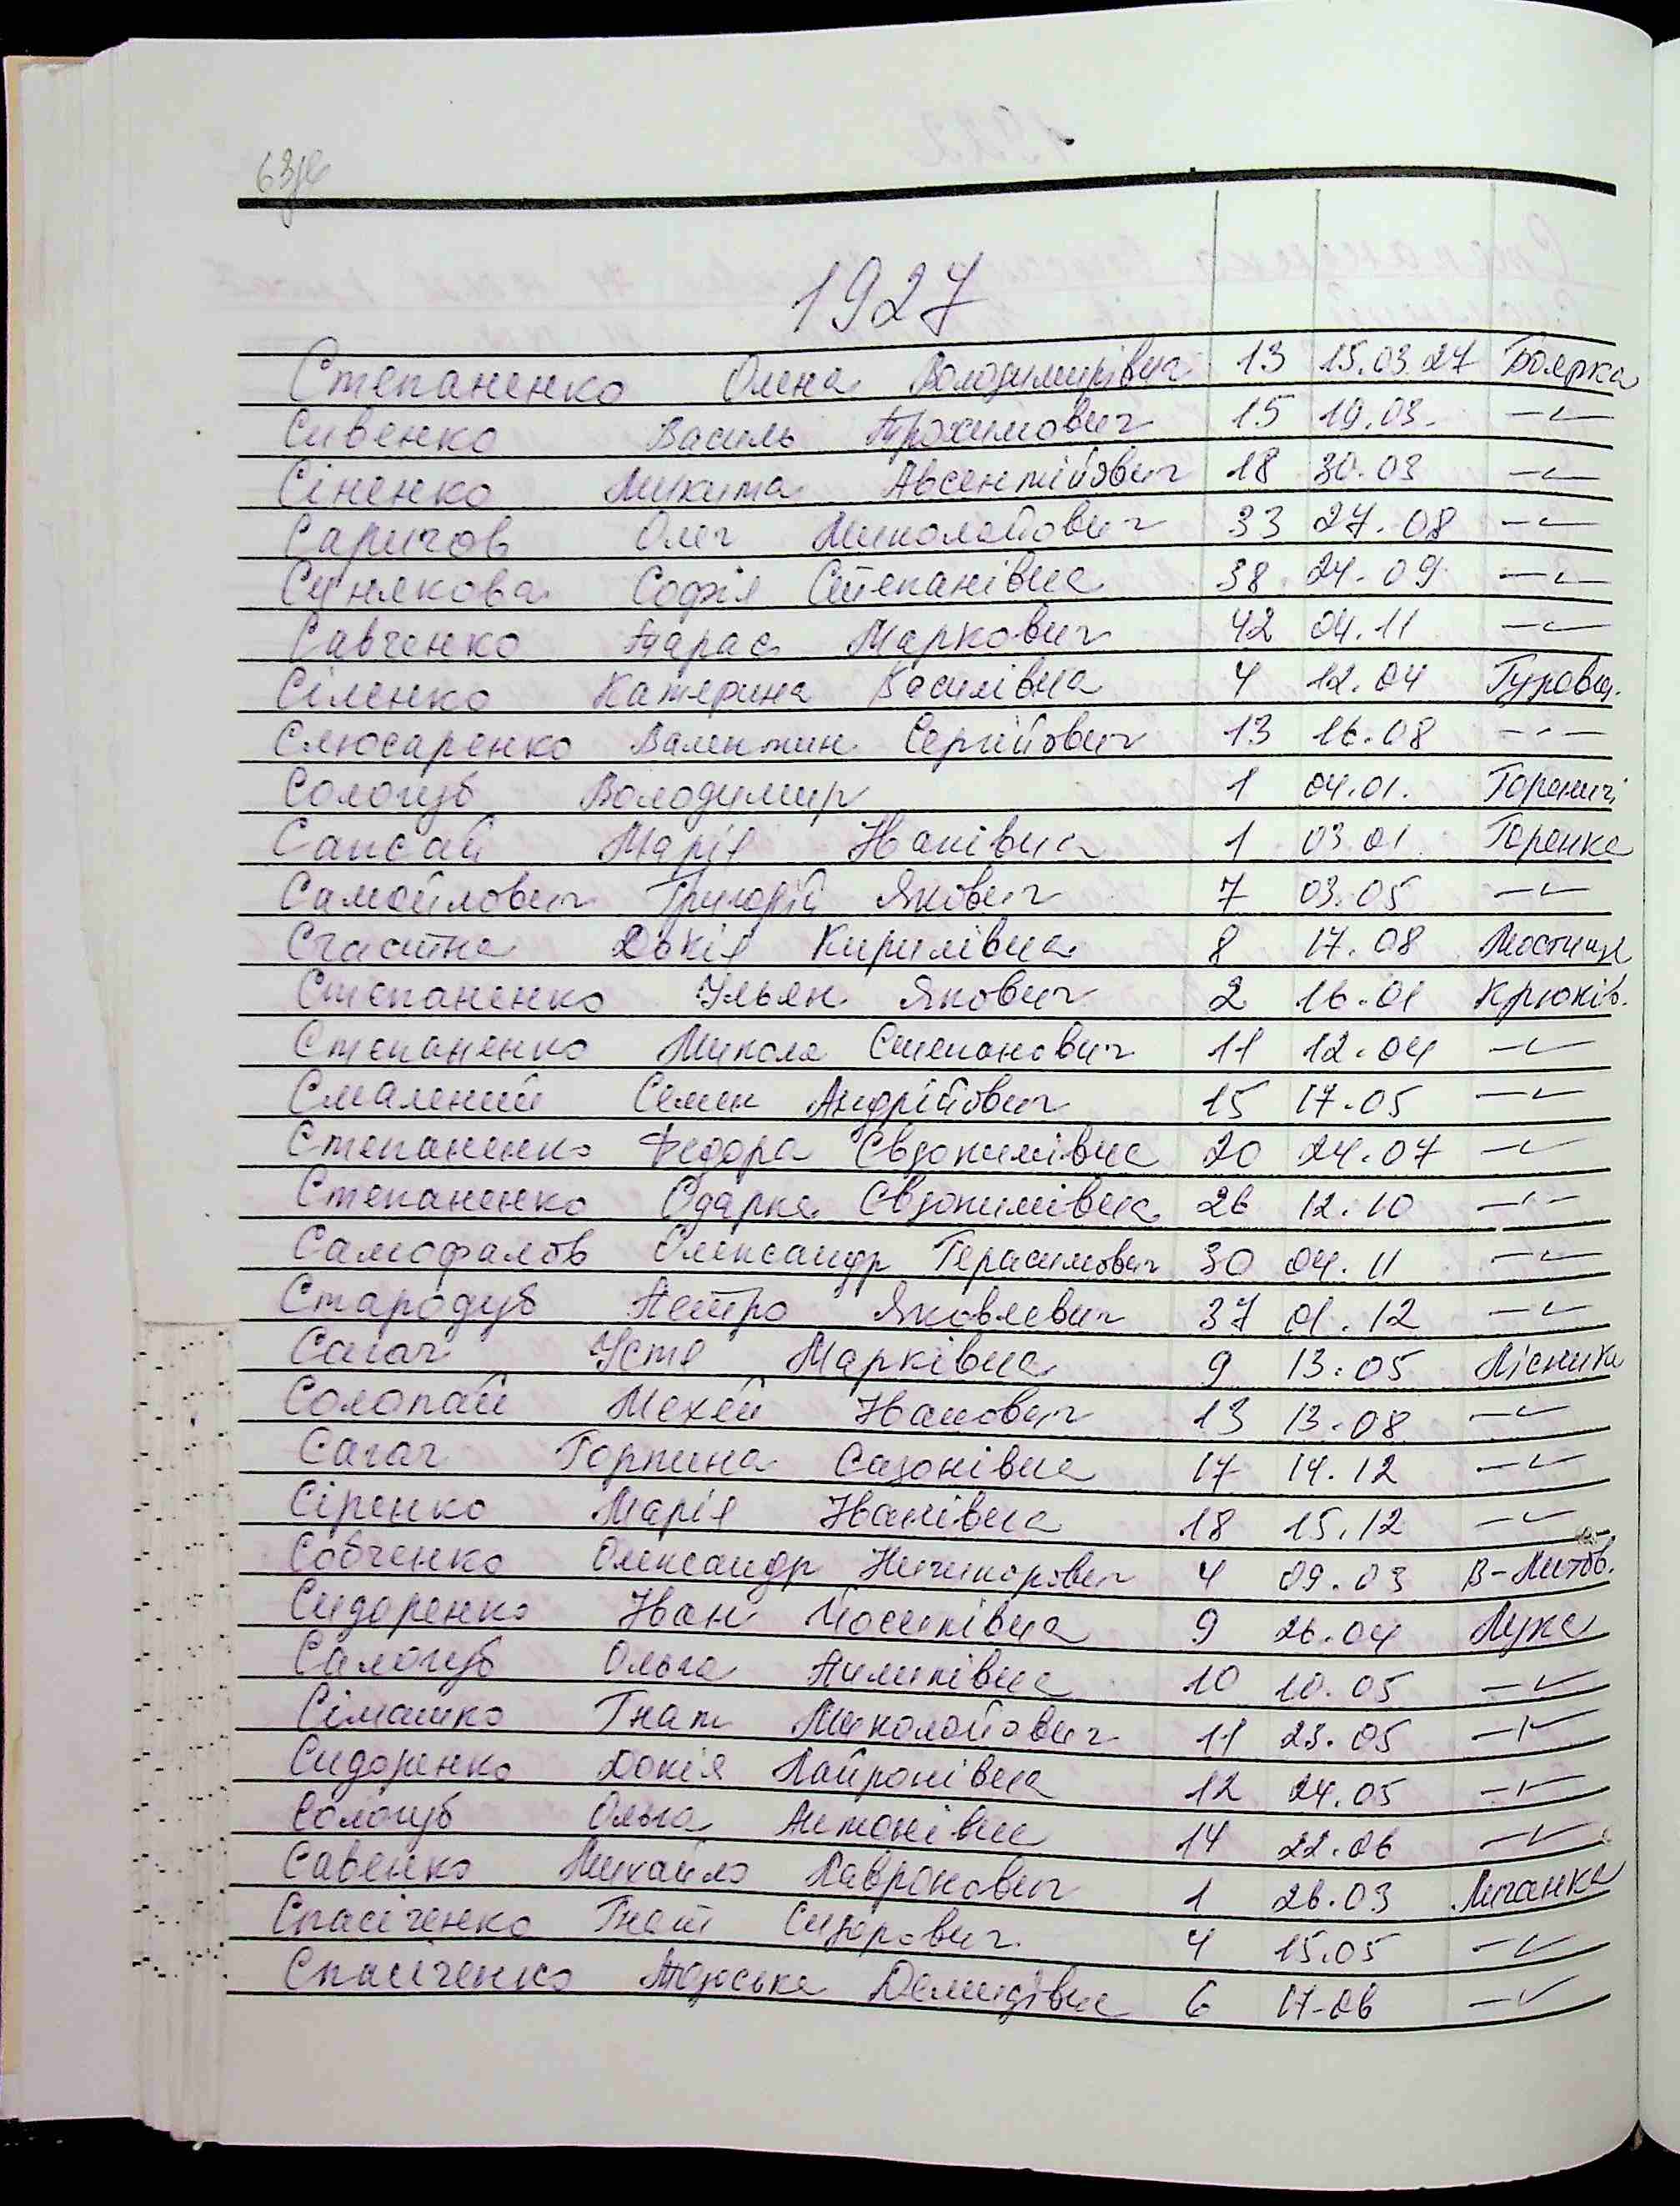 63
1927
Степаненко Олена Володимирівна 13 15.03.27 Боярка
Сивенко Василь Трохимович 15 19.03. -"-
Сіненко Микита Авсентійович 18 30.03 -"-
Саричов Олег Миколайович 33 27.08 -"-
Сунякова Софія Степанівна 38 24.09 -"-
Савченко Тарас Маркович 42 04.11 -"-
Сіленко Катерина Василівна 4 12.04 Гуровщ.
Слюсаренко Валентин Сергійович 13 16.08 -"-
Сологуб Володимир 1 04.01. Гореничі
Сапсай Марія Іванівна 1 03.01 Горенка
Самойлович Григорій Якович 7 03.05 -"-
Счастна Докія Кирилівна 8 17.08 Мостище
Степаненко Ульян Якович 2 16.01 Крюків.
Степаненко Микола Степанович 11 12.04 -"-
Смалений Семен Андрійович 15 17.05 -"-
Степаненко Федора Євдокимівна 20 24.07 -"-
Степаненко Одарка Євдокимівна 26 12.10 -"-
Самофалов Олександр Герасимович 30 04.11 -"-
Стародуб Петро Яковлевич 37 01.12 -"-
Сагач Устя Марківна 9 13.05 Лісники
Солопай Мехей Іванович 13 13.08 -"-
Сагач Горпина Сазонівна 17 14.12 -"-
Сіренко Марія Іванівна 18 15.12 -"-
Совченко Олександр Ничипорович 4 09.03 В-Литов.
Сидоренко Іван Йосипівна 9 26.04 Лука
Салогуб Ольга Пилипівна 10 10.05 -"-
Сімашко Гнат Миколайович 11 23.05 -"-
Сидоренко Докія Лайронівна 12 24.05 -"-
Сологуб Ольга Антонівна 14 22.06 -"-
Савенко Михайло Лавронович 1 26.03 Личанка
Спасіченко Гнат Сидорович 4 15.05 -"-
Спасіченко Тодоська Демидівна 6 17-06 -"-